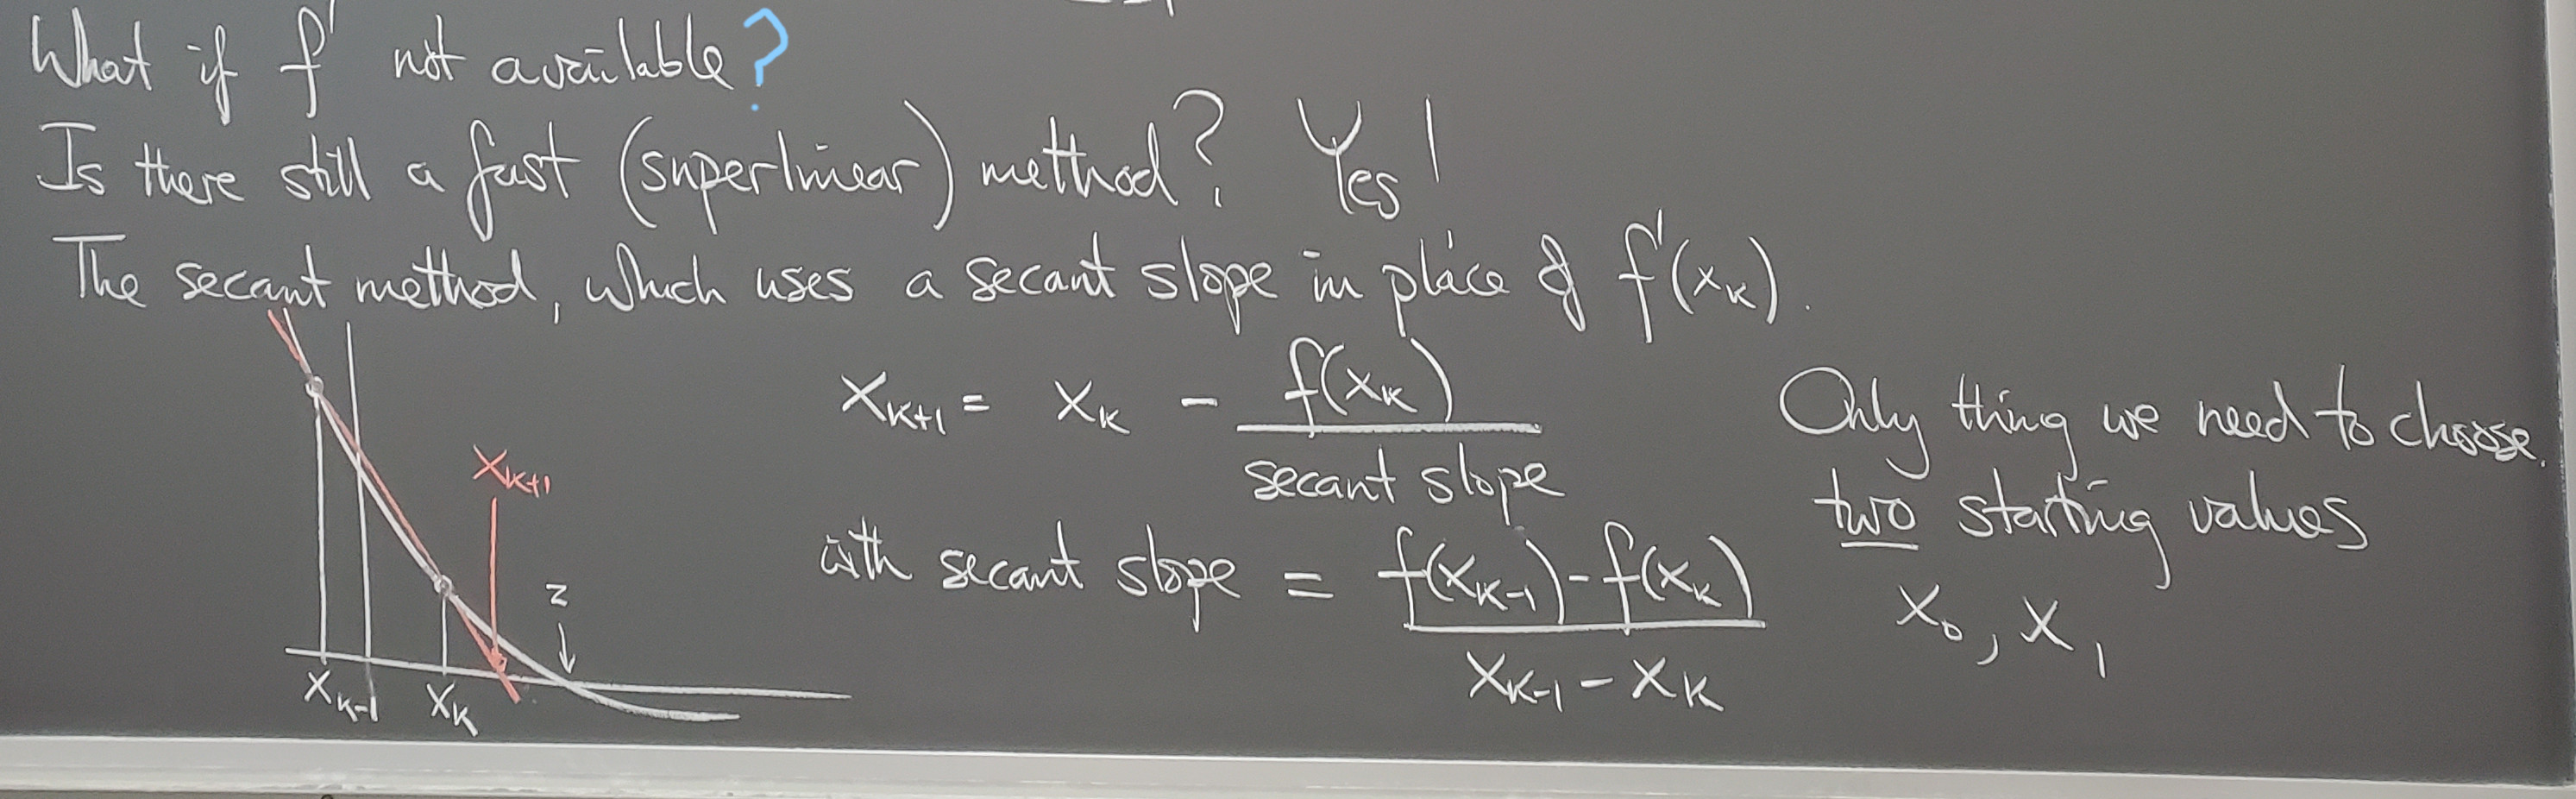 What if f' not available?
Is there still a fast (superlinear) method? Yes!
The secant method, which uses a secant slope in place of f'(xₖ).
xₖ₊₁ = xₖ - f(xₖ) / secant slope
with secant slope = f(xₖ₋₁) - f(xₖ) / xₖ₋₁ - xₖ
Only thing we need to choose.
two starting values
x₀, x₁
xₖ₊₁
z
xₖ₋₁
xₖ